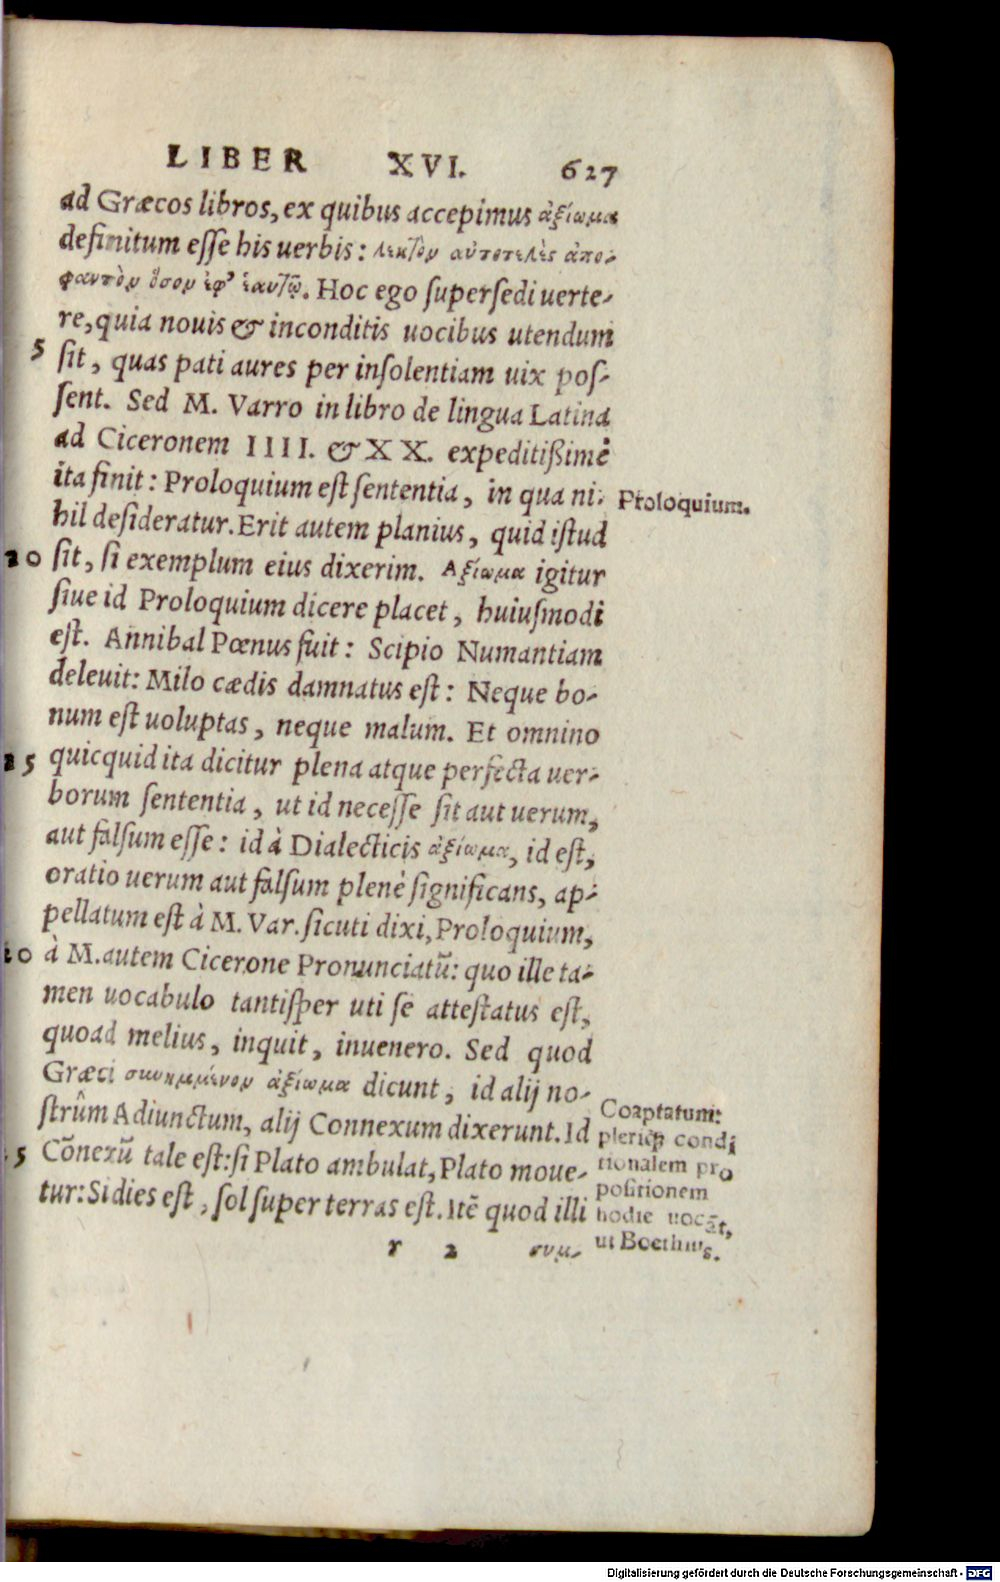 LIBER XVI. 627
ad Græcos libros, ex quibus accepimus ἀξίωμα
definitum esse his uerbis: λεκτὸν αὐτοτελὲς ἀπο-
φαντὸν ὅσον ἐφ' ἑαυτῷ. Hoc ego supersedi uerte-
re, quia nouis & inconditis uocibus utendum
5 sit, quas pati aures per insolentiam uix pos-
sent. Sed M. Varro in libro de lingua Latina
ad Ciceronem IIII. & XX. expeditißimè
ita finit: Proloquium est sententia, in qua ni-
Proloquium.
hil desideratur. Erit autem planius, quid istud
20 sit, si exemplum eius dixerim. Ἀξίωμα igitur
siue id Proloquium dicere placet, huiusmodi
est. Annibal Pœnus fuit: Scipio Numantiam
deleuit: Milo cædis damnatus est: Neque bo-
num est uoluptas, neque malum. Et omnino
25 quicquid ita dicitur plena atque perfecta uer-
borum sententia, ut id necesse sit aut uerum,
aut falsum esse: id à Dialecticis ἀξίωμα, id est,
oratio uerum aut falsum plenè significans, ap-
pellatum est à M. Var. sicuti dixi, Proloquium,
20 à M. autem Cicerone Pronunciatũ: quo ille ta-
men uocabulo tantisper uti se attestatus est,
quoad melius, inquit, inuenero. Sed quod
Græci συνημμένον ἀξίωμα dicunt, id alij no-
strûm Adiunctum, alij Connexum dixerunt. Id
5 Cõnexũ tale est: si Plato ambulat, Plato moue-
tur: Si dies est, sol super terras est. Itẽ quod illi
Coaptatum:
pleriq́; condi
tionalem pro
positionem
hodie uocãt,
ut Boethius.
r 2 συμ-
Digitalisierung gefördert durch die Deutsche Forschungsgemeinschaft - DFG